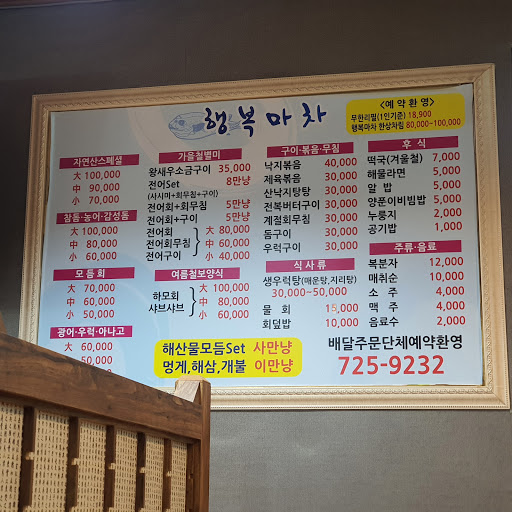 행복마차
<예약환영>
무한리필(1인기준) 18,900
행복마차 한상차림 80,000~100,000
자연산스페셜
大 100,000
中 90,000
小 70,000
참돔·농어·감성돔
大 100,000
中 80,000
小 60,000
모듬회
大 70,000
中 60,000
小 50,000
광어·우럭·아나고
大 60,000
50,000
가을철별미
왕새우소금구이 35,000
전어Set 8만냥
(사시미+회무침+구이)
전어회+회무침 5만냥
전어회+구이 5만냥
전어회 大 80,000
전어회무침 中 60,000
전어구이 小 40,000
여름철보양식
하모회 大 100,000
샤브샤브 中 80,000
小 60,000
해산물모듬Set 사만냥
멍게,해삼,개불 이만냥
구이·볶음·무침
낙지볶음 40,000
제육볶음 30,000
산낙지탕탕 40,000
전복버터구이 40,000
계절회무침 40,000
돔구이 40,000
우럭구이 40,000
식사류
생우럭탕(매운탕,지리탕)
30,000~50,000
물회 15,000
회덮밥 10,000
후식
떡국(겨울철) 7,000
해물라면 5,000
알밥 5,000
양푼이비빔밥 5,000
누룽지 2,000
공기밥 1,000
주류·음료
복분자 12,000
매취순 10,000
소주 4,000
맥주 4,000
음료수 2,000
배달주문단체예약환영
725-9232